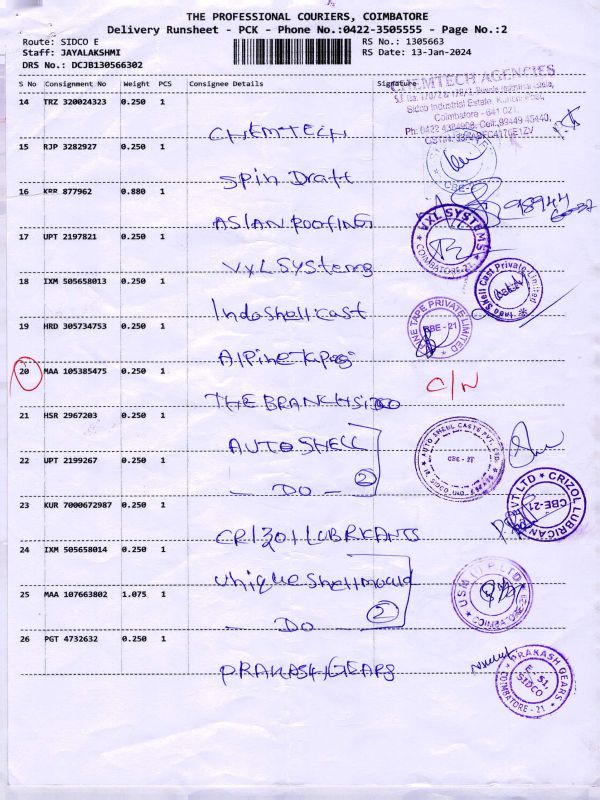 THE PROFESSIONAL COURIERS, COIMBATORE
Delivery Runsheet - PCK - Phone No.:0422-3505555 - Page No.:2
Route: SIDCO E
RS No.: 1305663
Staff: JAYALAKSHMI
RS Date: 13-Jan-2024
DRS No.: DCJB130566302
S No Consignment No Weight PCS Consignee Details Signature
CHEMTECH AGENCIES
14 TRZ 320024323 0.250 1
Sidco Industrial Estate,
Coimbatore - 641 021.
CHEMTECH
15 RJP 3282927 0.250 1
Spin Draft
CBE
16 KRR 877962 0.880 1
ASIAN ROOFING
17 UPT 2197821 0.250 1
VXL SYSTEMS
COIMBATORE-21
VXL Systems
18 IXM 505658013 0.250 1
Indo Shell Cast Private Limited
Indoshell cast
19 HRD 305734753 0.250 1
PINE TAPE PRIVATE LIMITED
CBE - 21
Alpine
20 MAA 105385475 0.250 1
C/N
THE BRANCH SIDCO
21 HSR 2967203 0.250 1
AUTO SHELL
AUTO SHELL CASTS PVT. LTD
CBE - 21
22 UPT 2199267 0.250 1
2
— DO —
23 KUR 7000672987 0.250 1
PVT LTD CRIZOL LUBRICAN
CBE-21
CRIZOL LUBRICANTS
24 IXM 505658014 0.250 1
Unique Shell mould
USM P LTD
COIMBATORE-21
25 MAA 107663802 1.075 1
2
— DO —
26 PGT 4732632 0.250 1
PRAKASH GEARS
PRAKASH GEARS
E 51
SIDCO
COIMBATORE - 21